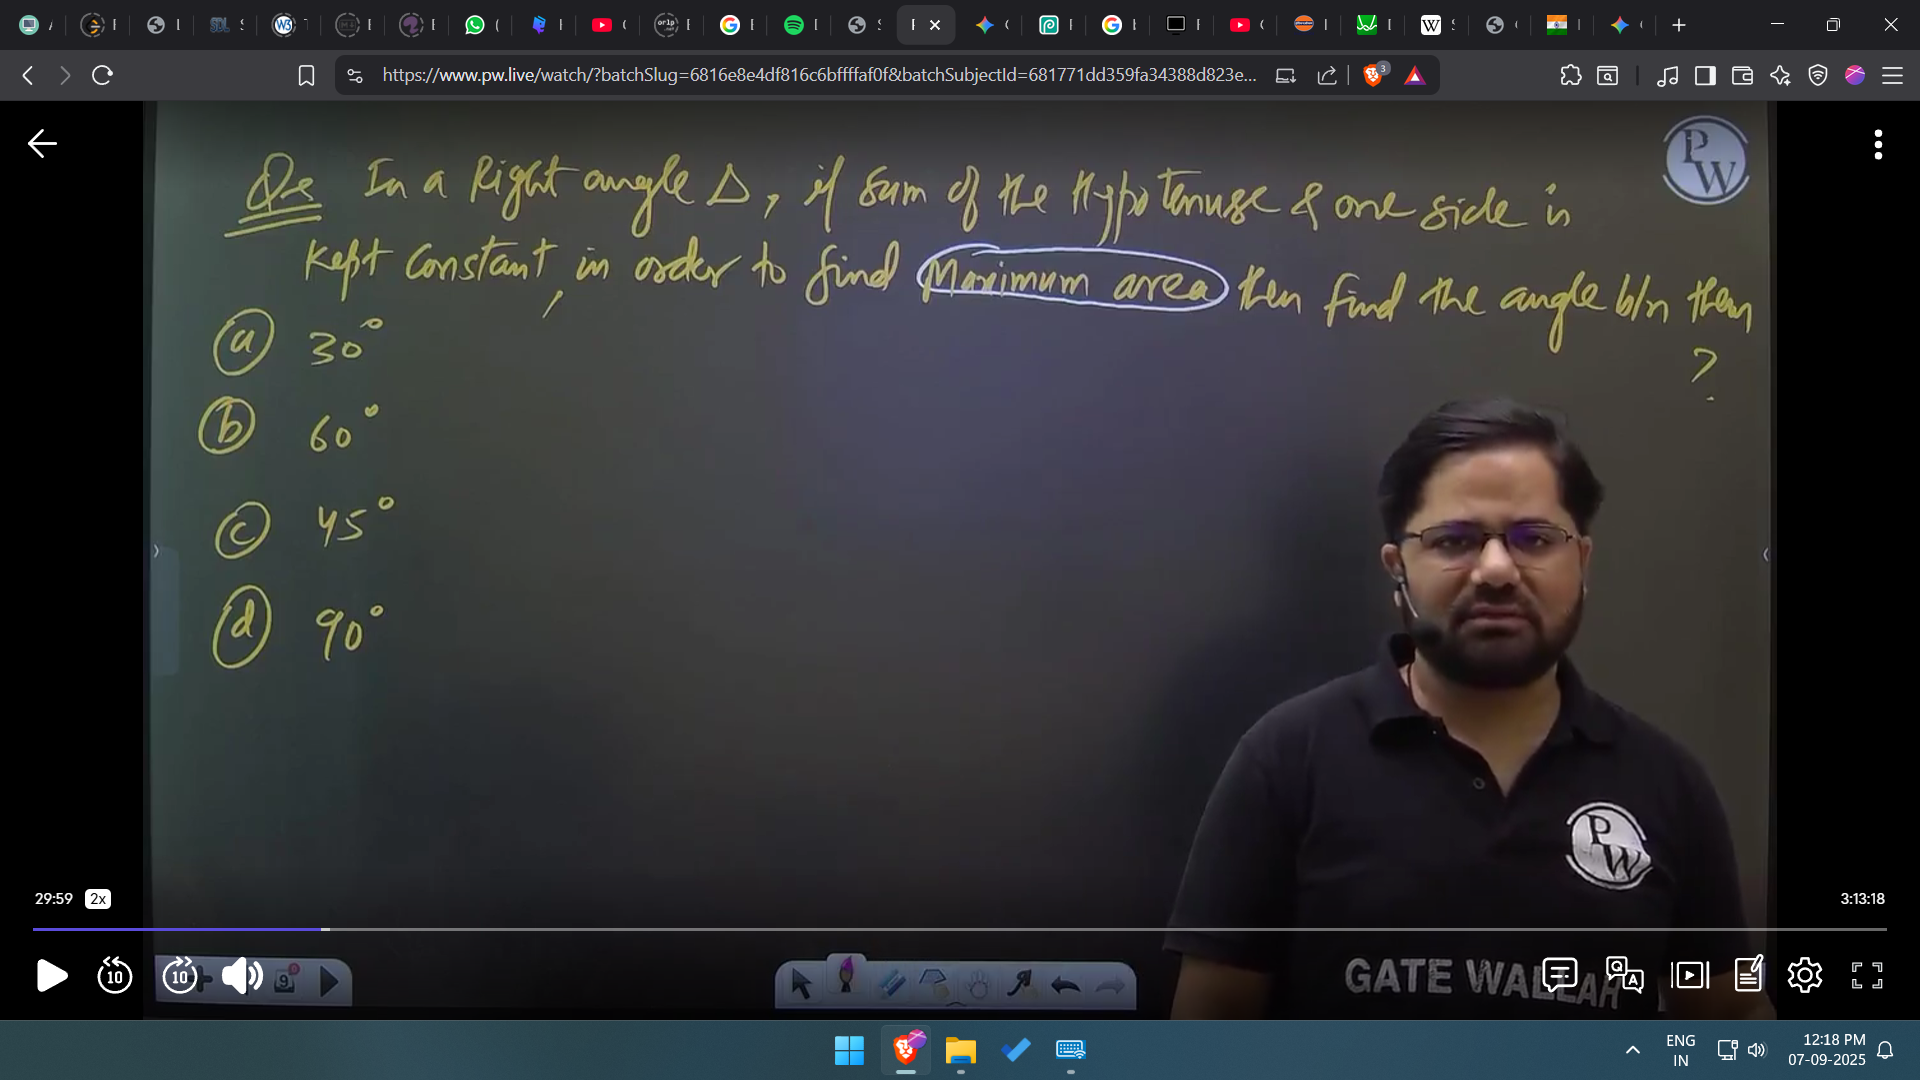 https://www.pw.live/watch/?batchSlug=6816e8e4df816c6bffffaf0f&batchSubjectId=681771dd359fa34388d823e...
3
PW
Qs In a Right angle Δ, if sum of the Hypotenuse & one side is
Kept Constant, in order to find Maximum area then find the angle b/n them
?
a 30°
b 60°
c 45°
d 90°
PW
29:59 2x
3:13:18
10 10 9
GATE WALLAH
ENG
IN
12:18 PM
07-09-2025